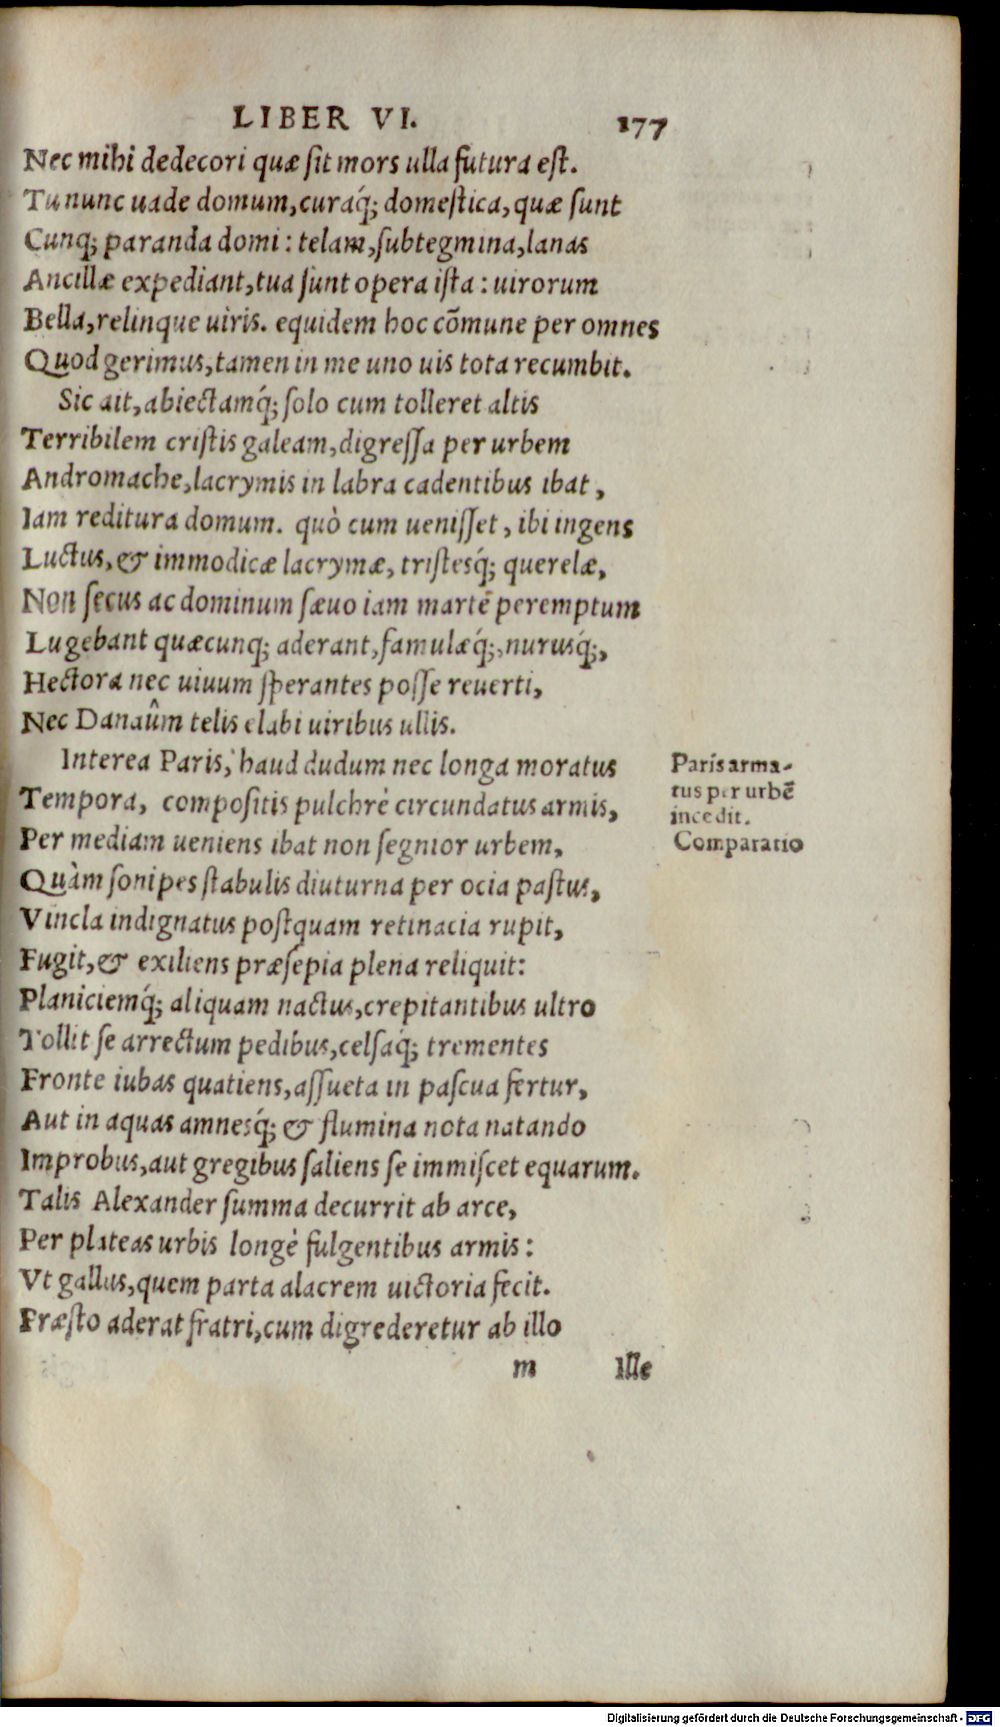 LIBER VI. 177
Nec mihi dedecori quæ sit mors ulla futura est.
Tu nunc uade domum, curaq́; domestica, quæ sunt
Cunq; paranda domi: telam, subtegmina, lanas
Ancillæ expediant, tua sunt opera ista: uirorum
Bella, relinque uiris. equidem hoc cõmune per omnes
Quod gerimus, tamen in me uno uis tota recumbit.
Sic ait, abiectamq́; solo cum tolleret altis
Terribilem cristis galeam, digressa per urbem
Andromache, lacrymis in labra cadentibus ibat,
Iam reditura domum. quò cum uenisset, ibi ingens
Luctus, & immodicæ lacrymæ, tristesq́; querelæ,
Non secus ac dominum sæuo iam martē peremptum
Lugebant quæcunq; aderant, famulæq́;, nurusq́;,
Hectora nec uiuum sperantes posse reuerti,
Nec Danaûm telis elabi uiribus ullis.
Interea Paris, haud dudum nec longa moratus
Tempora, compositis pulchrè circundatus armis,
Per mediam ueniens ibat non segnior urbem,
Quàm sonipes stabulis diuturna per ocia pastus,
Vincla indignatus postquam retinacia rupit,
Fugit, & exiliens præsepia plena reliquit:
Planiciemq́; aliquam nactus, crepitantibus ultro
Tollit se arrectum pedibus, celsaq́; trementes
Fronte iubas quatiens, assueta in pascua fertur,
Aut in aquas amnesq́; & flumina nota natando
Improbus, aut gregibus saliens se immiscet equarum.
Talis Alexander summa decurrit ab arce,
Per plateas urbis longè fulgentibus armis:
Vt gallus, quem parta alacrem uictoria fecit.
Præsto aderat fratri, cum digrederetur ab illo
m Ille
Paris arma-
tus per urbē
incedit.
Comparatio
Digitalisierung gefördert durch die Deutsche Forschungsgemeinschaft - DFG